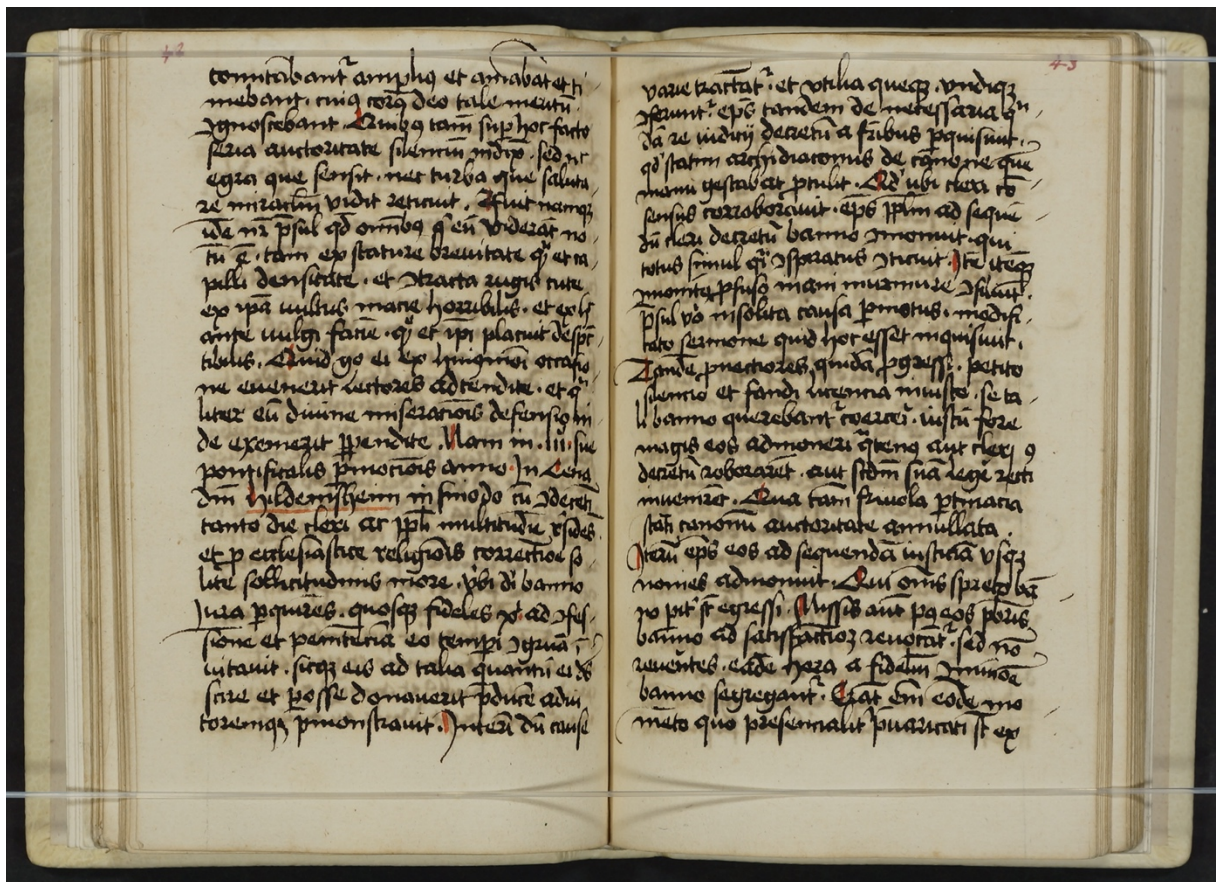 42
comitabantᷣ ampliꝰ et amabāt et ti
mebant · cuiꝰ corā deo tale meritū
ꝯgnoscebant · Quibꝫ tam̄ suꝑ hoc facto
seria auctoritate silenciū indix̄ · sed nec
egra que sensit · nec turba que saluta
re miraclm̄ vidit reticuit · Fuit namqꝫ
idē nr̄ p̄sul qd̄ omībꝫ q̄ eū viderāt no
tū ē · tam ex stature breuitate qͣ et ca
pilli densitate · et ꝯtracta rugis cute
ex ip̄a vultus macie horribilis · et
ante vulgi faciē · qͣ et ip̄i placuit despc̄
tibilis · Quid go ei ex occasio
ne euenerit lectores adtendite · et qͣ
liter eū diuine miseracōis defensio in
de exemerit ꝑpendite · Nam in · iii · sue
pontificalis ꝓmocōis anno · In Cena
dn̄i hildenissheim in sinodo cū
tanto die cleri ac ppl̄i multitudīe p̄sidēs
et ꝓ ecclesiastice religionis correctōe so
lite sollicitudinis more · vbi di banno
iura ꝑquirēs · quosqꝫ fideles ad ꝯfes
sionē et penitēciā eo tempī ꝯgruā
īuitauit · sicqꝫ eis ad talia quantū ei ds̄
scire et posse donauerit p̄ducē adiu
toremqꝫ p̄monstrauit · Interī dū cause
43
varie tractātᷣ · et vtilia queqꝫ vndiqꝫ
ꝯferuntᷣ · ep̄s tandem de necessaria qͣ
dā re iudicij decretū a fr̄ibus ꝑquisiuit ·
qd̄ statim archidiaconus de canone quē
manu gestabat ꝓtulit · Qd̄ vbi cleri cō
sensus corroborauit · ep̄s ppl̄m ad sequē
dū cleri decretū banno ꝯmonuit · qui
totus simul qͣi ꝯspiratus ꝯticuit · Ite iteqꝫ
ꝯmonitꝰ ꝓfuso inani murmure
p̄sul v̄o insolita causa ꝑmotus · modifi
cato sermone quid hoc esset inquisiuit ·
Tandē ꝓuectiores quidā ꝓgressi · petito
silencio et fandi licencia iniuste · se ta
li banno querebantᷣ coerceri · iustū fore
magis eos admoneri qͣtenꝰ aut cleri
decretū roborarēt · aut scd̄m suā legē recti
inuenirēt · Qua tam̄ friuola ꝑtinacia
stati canonū auctoritate annullata ·
Iterū ep̄s eos ad sequendā iusticiā vsqꝫ
nomies admonuit · Qui om̄is spreto bā
no pit̄ st̄ egressi · Missis aut̄ pꝰ eos ꝓoris
banno ad satisfactiōꝫ reuocātᷣ · sed nō
reuertētes · eadē hora a fideliū ꝯmuniōe
banno segregantᷣ · Erāt em̄ eodē mo
mēto quo presencialit̄ p̄uaricati st̄ ex